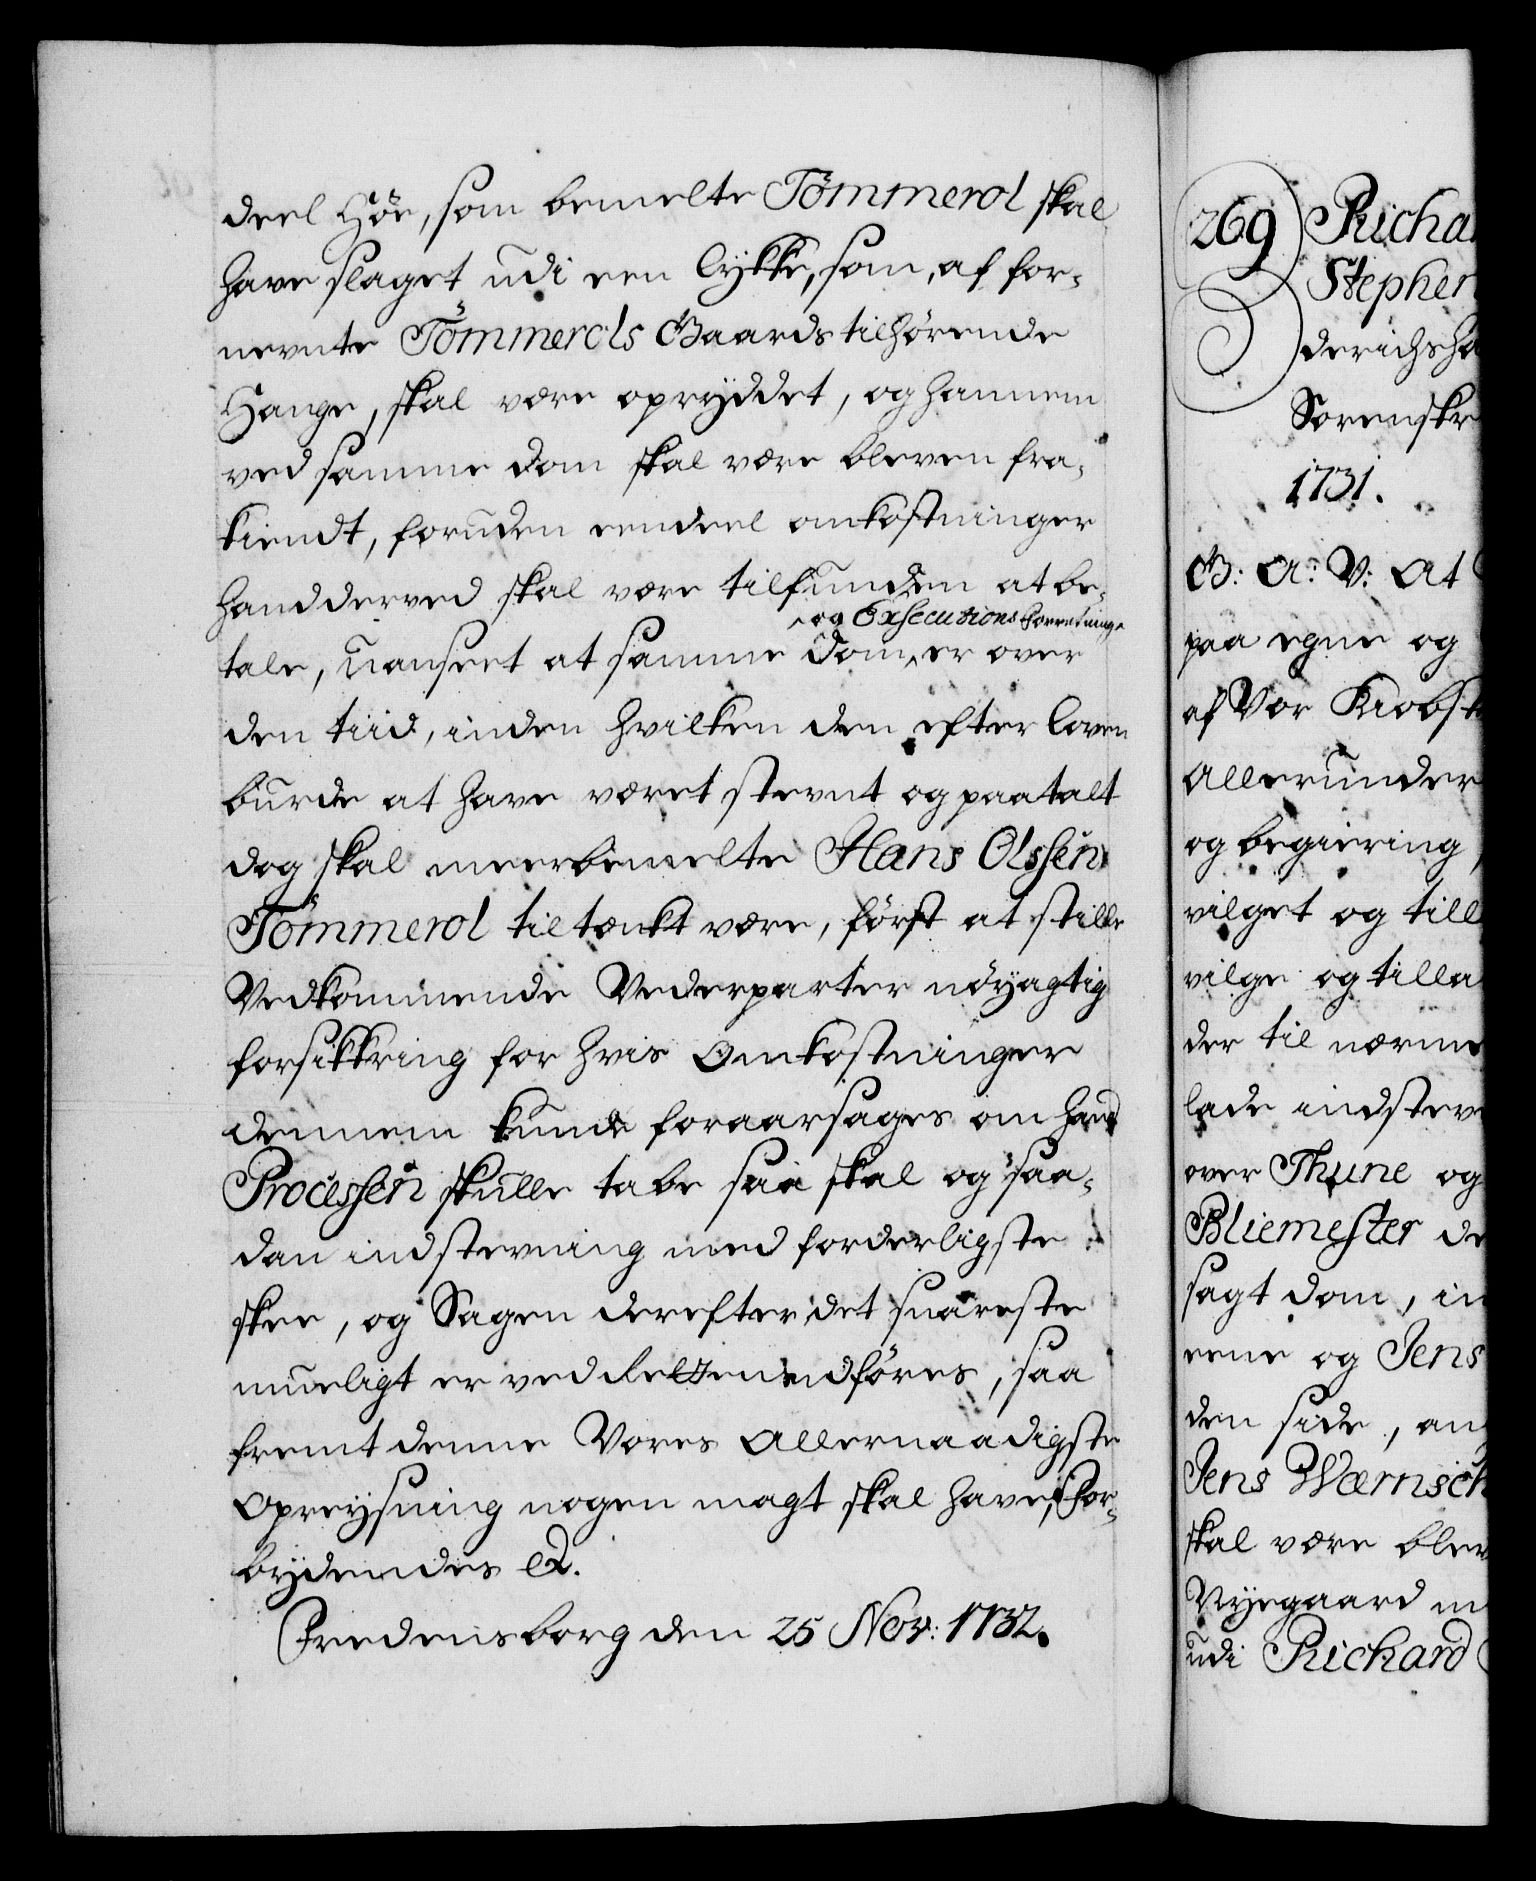 deel Höe, som bemelte Tömmerol skal
have slaget udi een lykke, som, af for-
nevnte Tömmerols Gaards tilhørende
Hange, skal være opryddet, og hannem
ved samme dom skal være bleven fra-
kiendt, foruden eendeel omkostninger
hand derved skal være tilfunden at be-
og Exsecutions Forretninge
tale, Uanseet at samme Dom er over
den tiid, inden hvilken den efter loven
burde at have været stevnt og paatalt
dog skal meerbemelte Hans Olssen
Tömmerol tiltænkt være, först at stille
Vedkommende Vederparter nöyagtig
forsikkring for hvis Omkostninger
dennem kunde foraarsages om hand
Processen skulle tabe saa skal og saa-
dan indstevning med forderligste
skee, og Sagen derefter det snareste
mueligt er ved Retten udföres, saa
fremt denne Vores Allernaadigste
Opreysning nogen magt skal have, For-
bydendes &c.
Fredensborg den 25 Nov: 1732.
269 Richa
Stephen
derichsha
Sorenskr
1731.
G: A: V: At
paa egne og
af Vor Kiøbst
Allerunder
og begiering
vilget og till
vilge og tilla
der til nærme
lade indsteve
over Thune og
Bliemester de
sagt dom, in
eene og Jens
den side, an
Jens Wærnsch
skal være blev
Nyegaard m
udi Richard